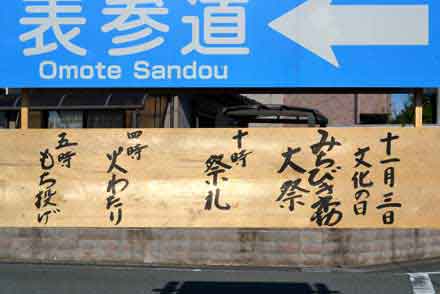 表参道
Omote Sandou
十一月三日
文化の日
大祭
十時
祭礼
四時
火わたり
五時
もち投げ